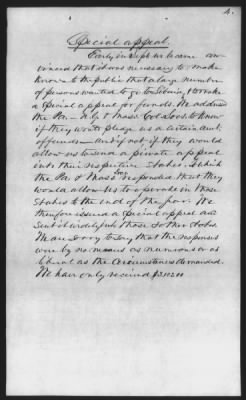 4.
Special appeal.
Early in Sept. we became con-
vinced that it was necessary to make
known to the public that a large number
of persons wanted to go to Liberia, & to make
a special appeal for funds. We addressed
the Pa. N.Y. & Mass. Col. Socs. to know
if they would pledge us a certain amt.
of funds — and if not if they would
allow us to send a private appeal
into their respective States. To which
the Pa. & Mass Socs responded that they
would allow us to operate in those
States to the end of the year. We
therefore issued a special appeal and
sent it widely in those & other States.
I am sorry to say that the responses
were by no means as numerous or as
liberal as the circumstances demanded.
We have only received